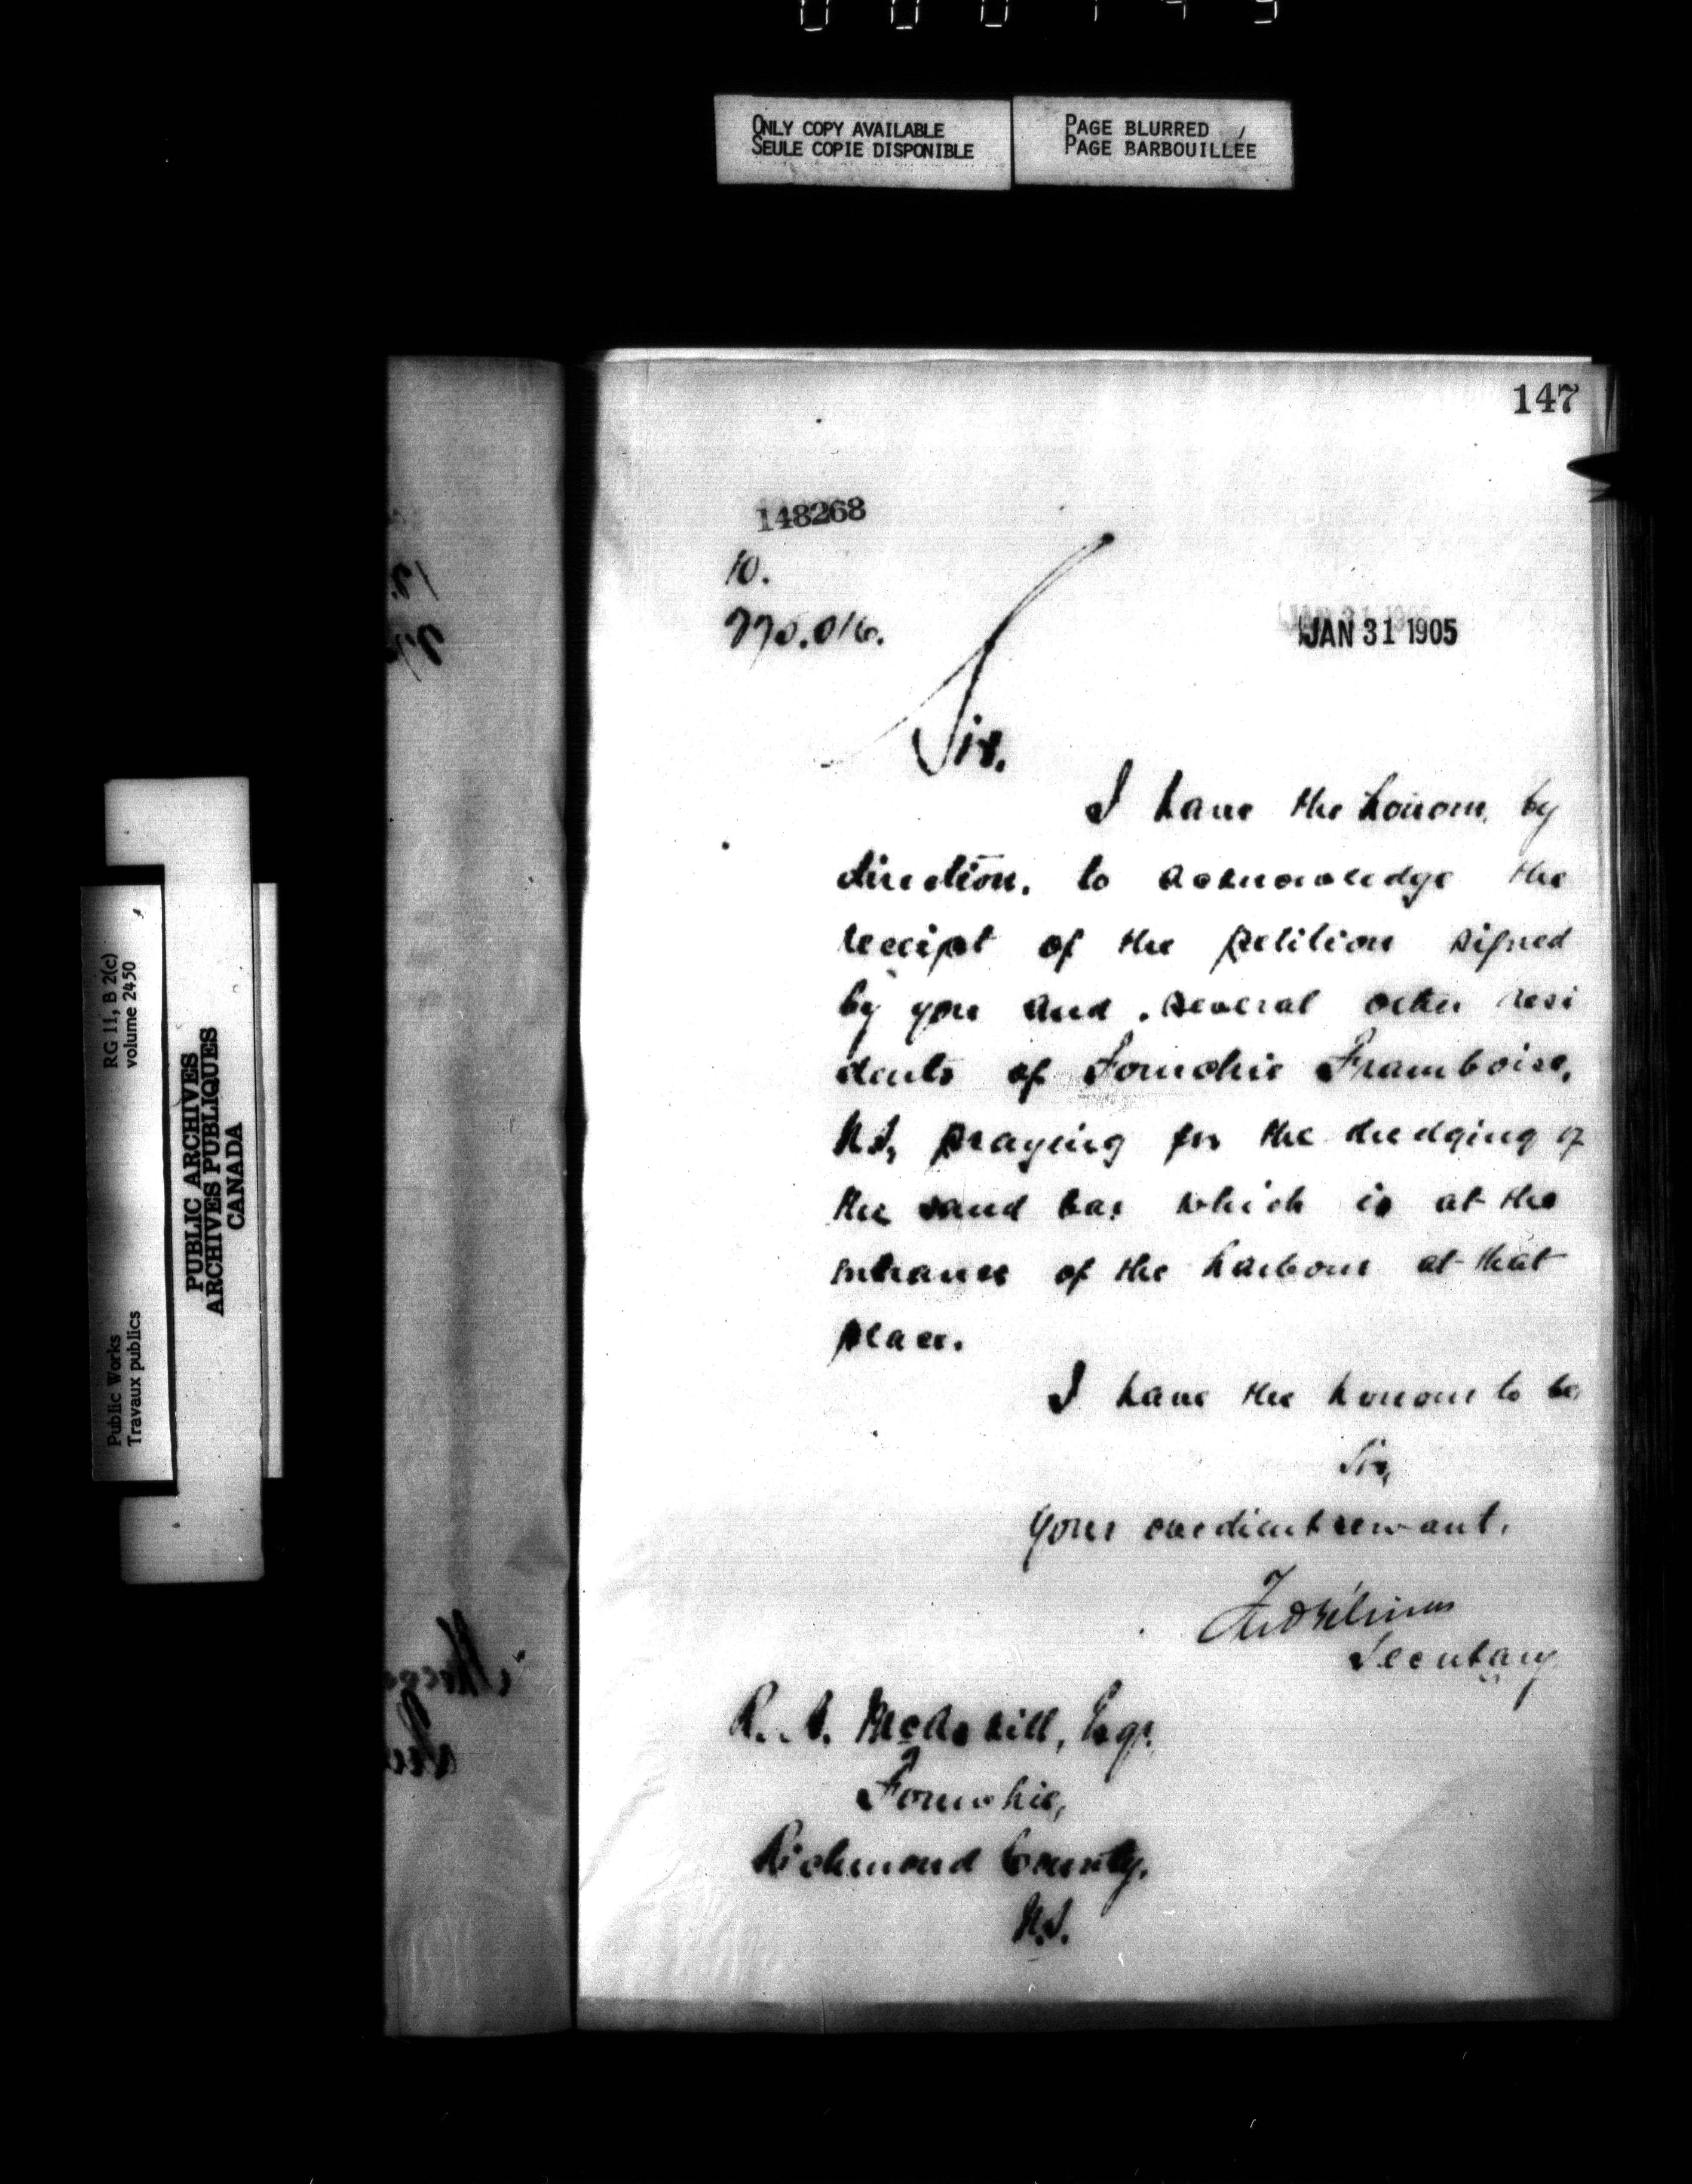 ONLY COPY AVAILABLE
SEULE COPIE DISPONIBLE
PAGE BLURRED
PAGE BARBOUILLÉE
147
148268
10.
JAN 31 1905
Sir.
I have the honour, by
direction, to acknowledge the
receipt of the petition signed
by you and several other resi
dents of Fourchie Framboise,
N.S, praying for the dredging of
the sand bar which is at the
entrance of the harbour at that
place.
I have the honour to be,
Sir,
Your obedient servant,
Secretary
R. A. McAskill, Esqr.
Fourchie,
Richmond County,
N.S.
RG 11, B 2(c)
volume 2450
Public Works
Travaux publics
PUBLIC ARCHIVES
ARCHIVES PUBLIQUES
CANADA